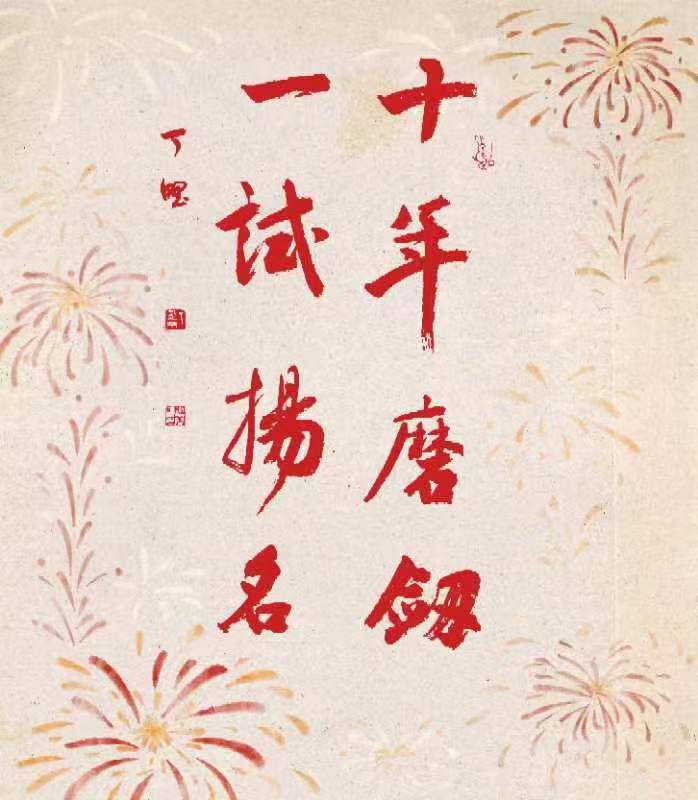 十年磨劔
一試揚名
丁